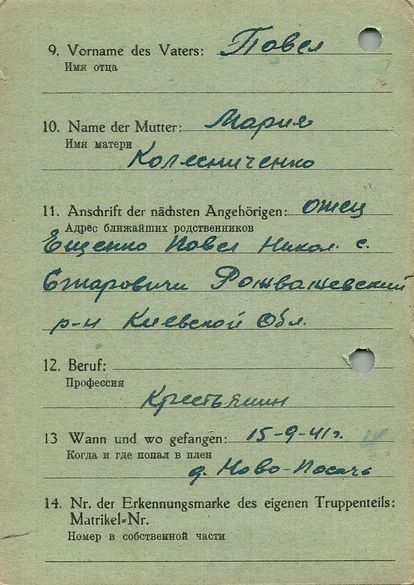 9. Vorname des Vaters: Павел
Имя отца
10. Name der Mutter: Мария
Имя матери
Колесниченко
11. Anschrift der nächsten Angehörigen: отец
Адрес ближайших родственников
Ещенко Павел Никол. с.
Старовичи Розважевский
р-н Киевской Обл.
12. Beruf:
Профессия
Крестьянин
13 Wann und wo gefangen: 15-9-41г.
Когда и где попал в плен
д. Ново-
14. Nr. der Erkennungsmarke des eigenen Truppenteils:
Matrikel-Nr.
Номер в собственной части